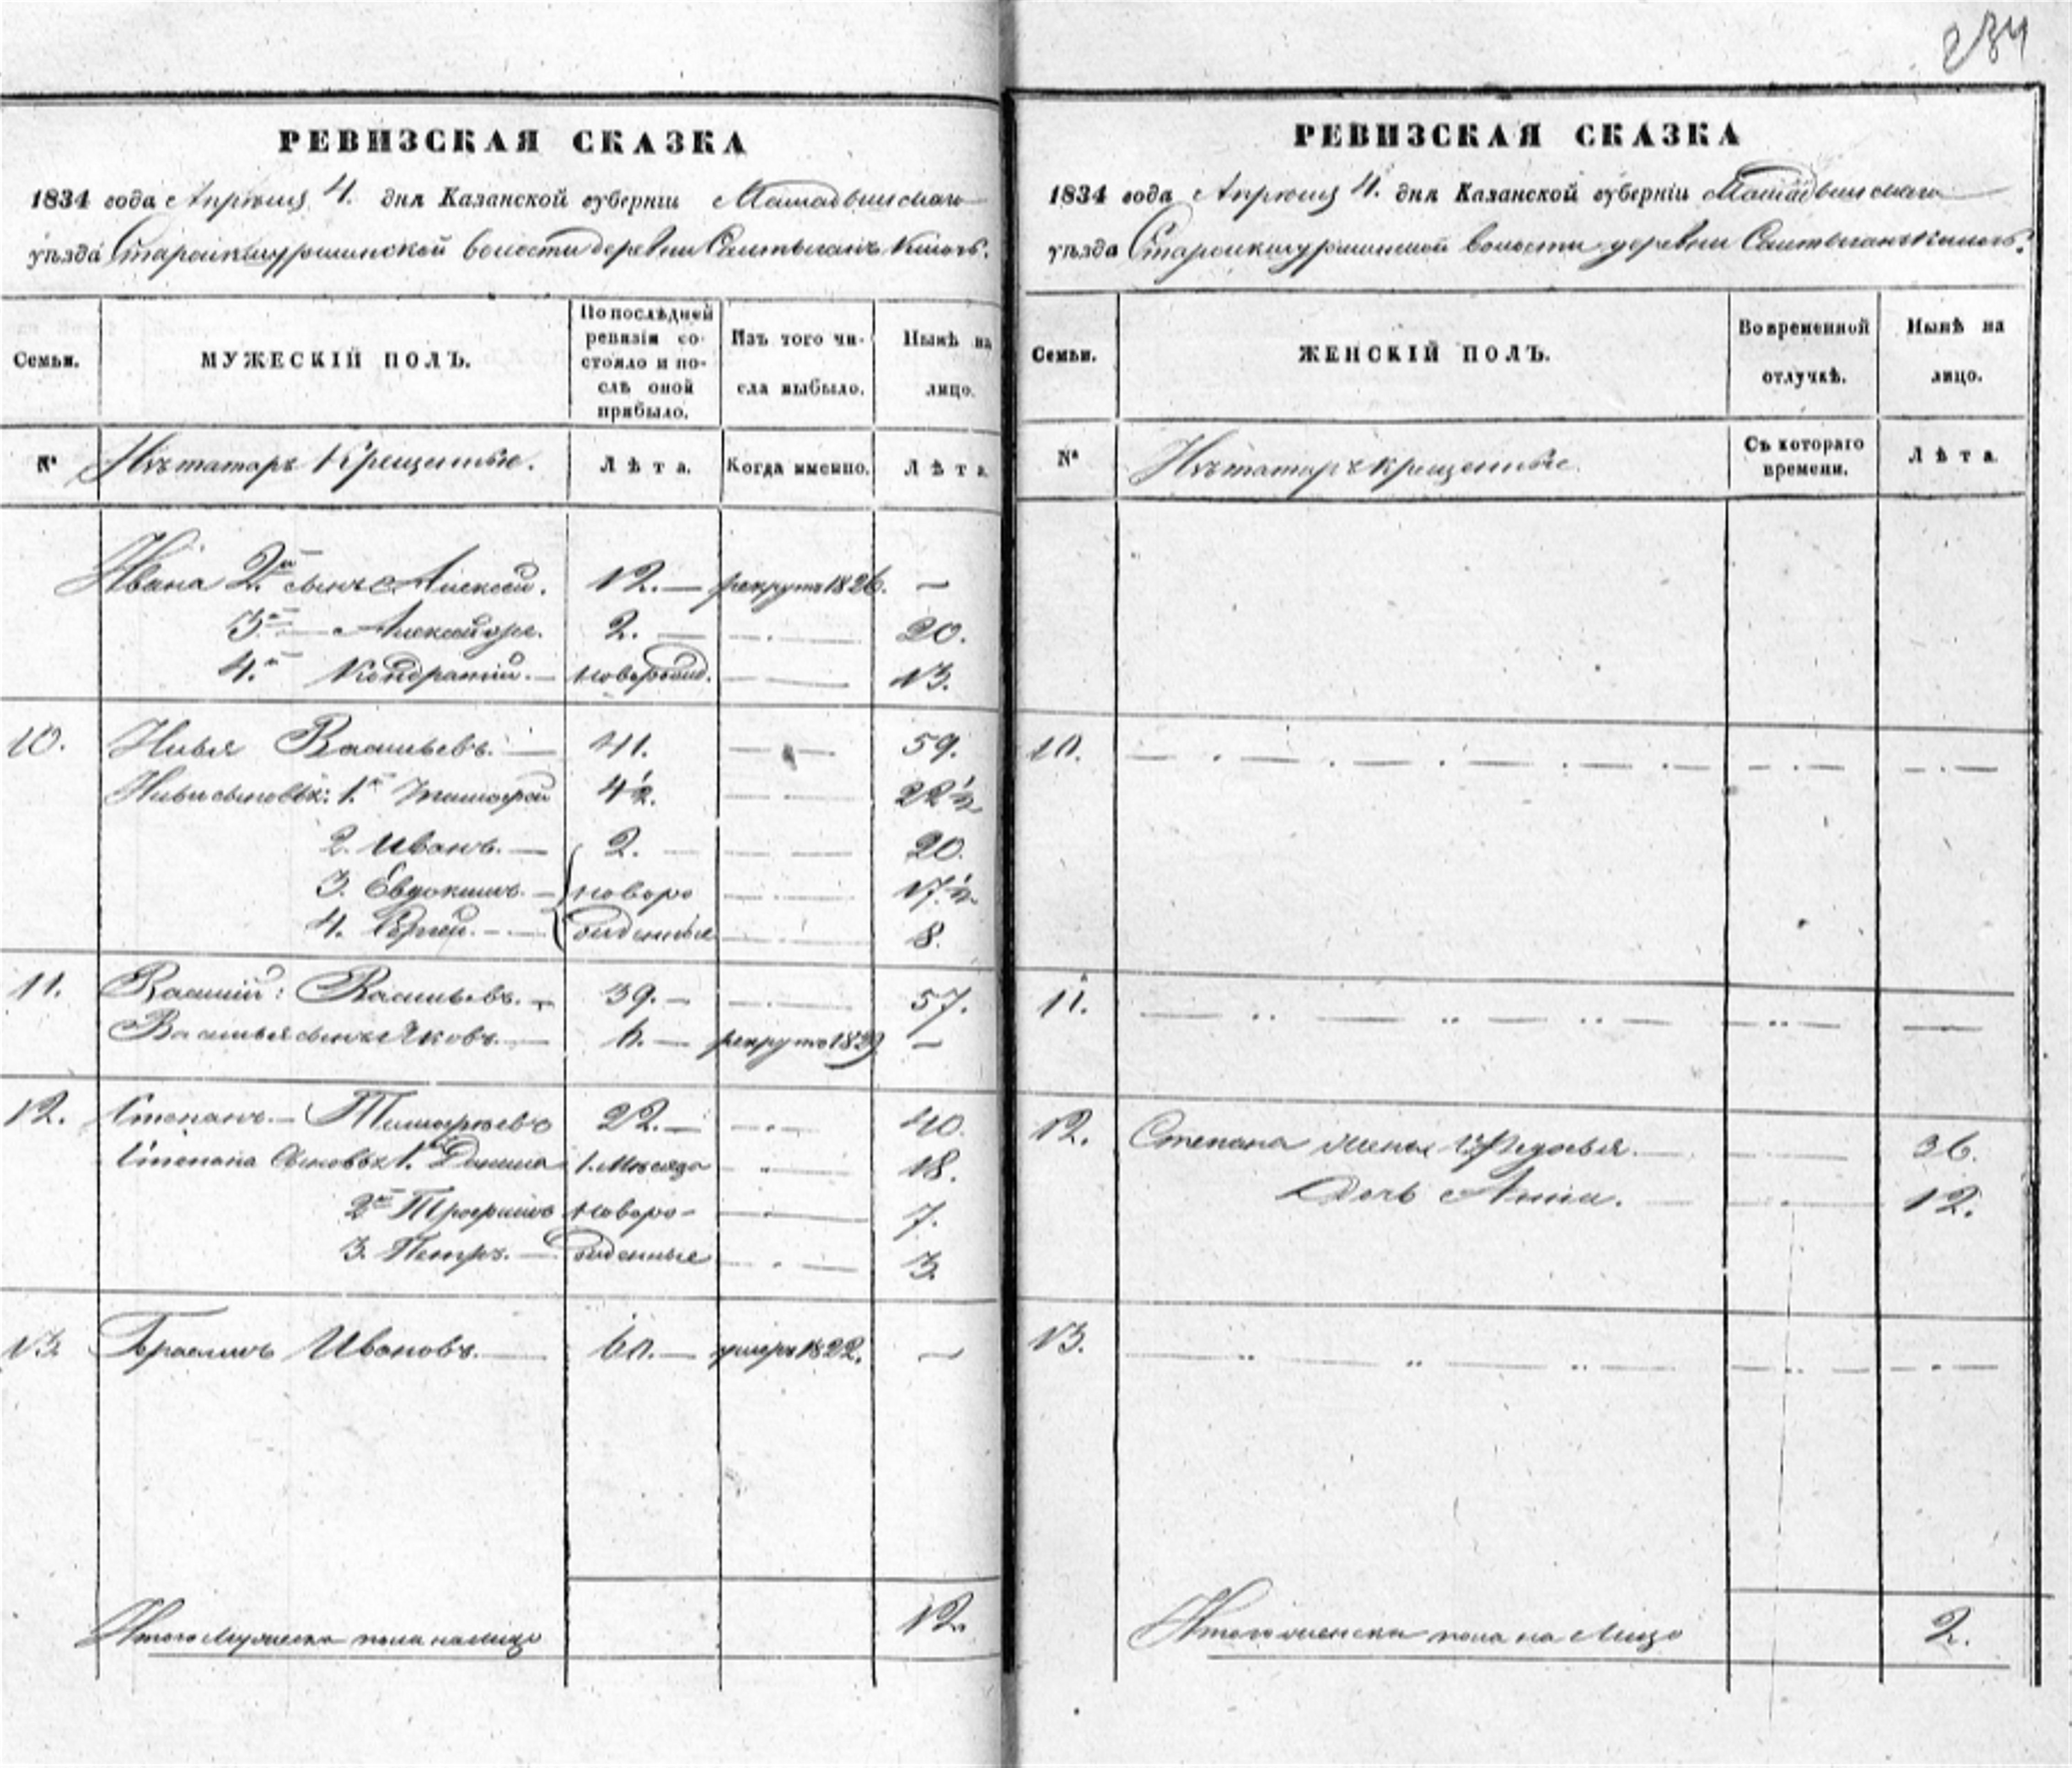 234
РЕВИЗСКАЯ СКАЗКА
1834 года Апреля 4. дня Казанской губерніи Мамадышскаго
уѣзда Староикшурминской волости деревни Салтыганъ Ключь.
Семьи.
МУЖЕСКІЙ ПОЛЪ.
По послѣдней ревизіи состояло и послѣ оной прибыло.
Изъ того числа выбыло.
Нынѣ на лицо.
№
Изъ татаръ Крещеные.
Лѣта.
Когда именно.
Лѣта
Ивана 2й сынъ Алексей. 12. — рекрутъ 1826. —
3й — Александръ. 2. — 20.
4й Кондратій. — новорожд. 13.
10. Илья Васильевъ. — 41. — 59.
Ильи сыновья: 1й Тимофей 4½. 22½
2. Иванъ. — 2. — 20.
3. Евдокимъ. — новоро 17½
4. Сергей. — жденные 8.
11. Василій: Васильевъ. — 39. — 57.
Василья сынъ Яковъ. — 6. — рекрутъ —
12. Степанъ. — Тимофеевъ 22. — 40.
Степана Сыновья 1й Данила 1. Месяца 18.
2й Трофимъ новоро- 7.
3. Петръ. — жденные 3.
13. Ивановъ. — 60. — умеръ 1822. —
Итого Мужеска пола налицо 12.
РЕВИЗСКАЯ СКАЗКА
1834 года Апреля 4. дня Казанской губерніи Мамадышскаго
уѣзда Староикшурминской волости деревни Салтыганъ Ключь.
Семьи.
ЖЕНСКІЙ ПОЛЪ.
Во временной отлучкѣ.
Нынѣ на лицо.
№
Изъ татаръ крещенные.
Съ котораго времени.
Лѣта
10.
11.
12. Степана жена Федосья. — 36.
Дочь Анна. — 12.
13.
Итого женска пола на Лицо 2.